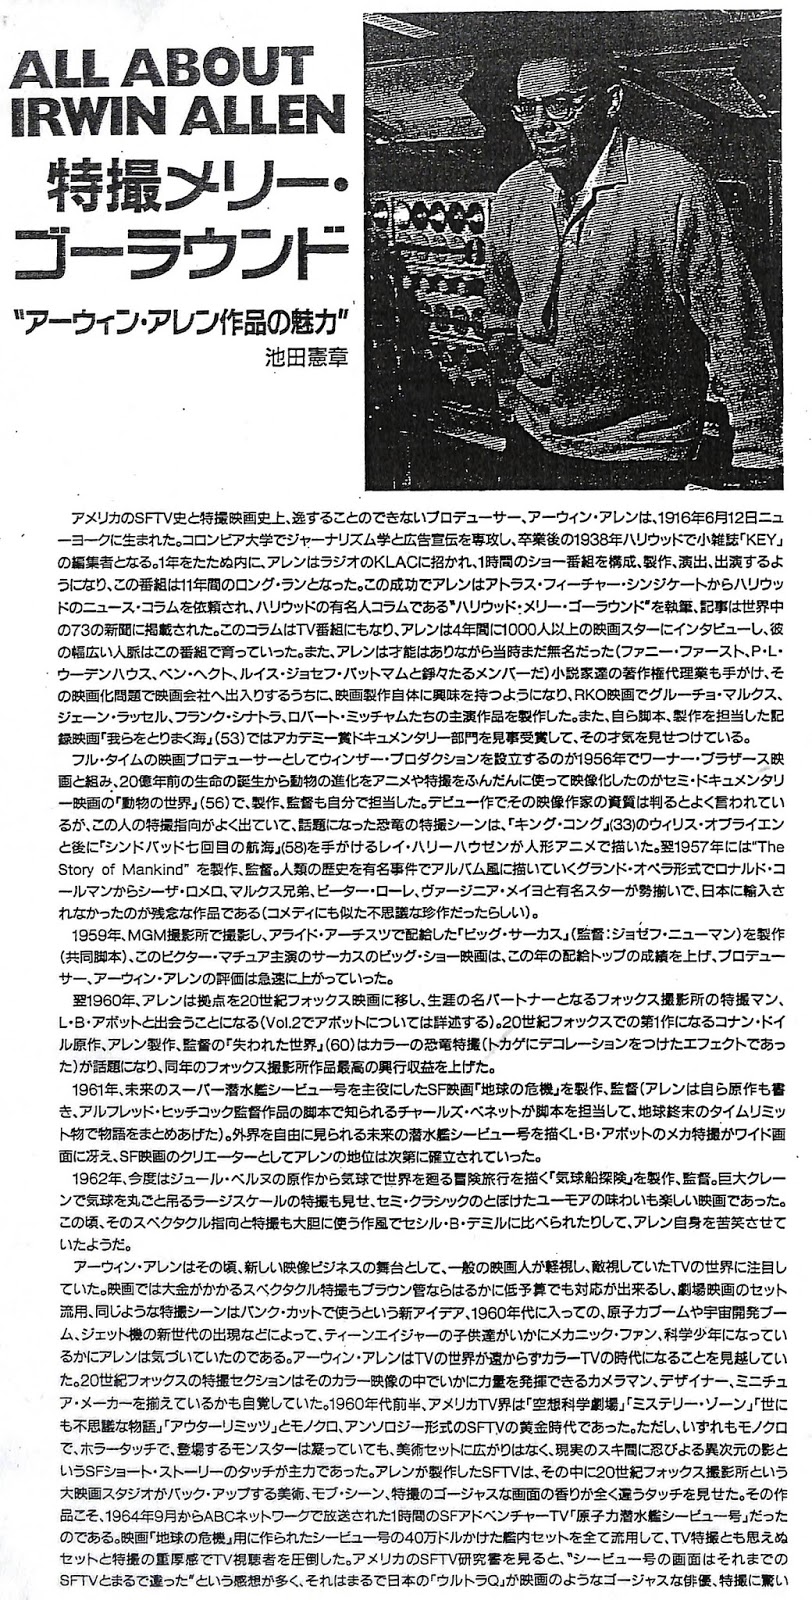 ALL ABOUT
IRWIN ALLEN
特撮メリー・
ゴーラウンド
"アーウィン・アレン作品の魅力"
池田憲章
アメリカのSFTV史と特撮映画史上、逸することのできないプロデューサー、アーウィン・アレンは、1916年6月12日ニュ
ーヨークに生まれた。コロンビア大学でジャーナリズム学と広告宣伝を専攻し、卒業後の1938年ハリウッドで小雑誌「KEY」
の編集者となる。1年をたたぬ内に、アレンはラジオのKLACに招かれ、1時間のショー番組を構成、製作、演出、出演するよ
うになり、この番組は11年間のロング・ランとなった。この成功でアレンはアトラス・フィーチャー・シンジケートからハリウッ
ドのニュース・コラムを依頼され、ハリウッドの有名人コラムである"ハリウッド・メリー・ゴーラウンド"を執筆、記事は世界中
の73の新聞に掲載された。このコラムはTV番組にもなり、アレンは4年間に1000人以上の映画スターにインタビューし、彼
の幅広い人脈はこの番組で育っていった。また、アレンは才能はありながら当時まだ無名だった(ファニー・ファースト、P・L・
ウーデンハウス、ベン・ヘクト、ルイス・ジョセフ・バットマムと錚々たるメンバーだ)小説家達の著作権代理業も手がけ、そ
の映画化問題で映画会社へ出入りするうちに、映画製作自体に興味を持つようになり、RKO映画でグルーチョ・マルクス、
ジェーン・ラッセル、フランク・シナトラ、ロバート・ミッチャムたちの主演作品を製作した。また、自ら脚本、製作を担当した記
録映画「我らをとりまく海」(53)ではアカデミー賞ドキュメンタリー部門を見事受賞して、その才気を見せつけている。
フル・タイムの映画プロデューサーとしてウィンザー・プロダクションを設立するのが1956年でワーナー・ブラザース映
画と組み、20億年前の生命の誕生から動物の進化をアニメや特撮をふんだんに使って映像化したのがセミ・ドキュメンタリ
ー映画の「動物の世界」(56)で、製作、監督も自分で担当した。デビュー作でその映像作家の資質は判るとよく言われてい
るが、この人の特撮指向がよく出ていて、話題になった恐竜の特撮シーンは、「キング・コング」(33)のウィリス・オブライエン
と後に「シンドバッド七回目の航海」(58)を手がけるレイ・ハリーハウゼンが人形アニメで描いた。翌1957年には"The
Story of Mankind" を製作、監督。人類の歴史を有名事件でアルバム風に描いていくグランド・オペラ形式でロナルド・コ
ールマンからシーザ・ロメロ、マルクス兄弟、ピーター・ローレ、ヴァージニア・メイヨと有名スターが勢揃いで、日本に輸入さ
れなかったのが残念な作品である(コメディにも似た不思議な珍作だったらしい)。
1959年、MGM撮影所で撮影し、アライド・アーチスツで配給した「ビッグ・サーカス」(監督:ジョゼフ・ニューマン)を製作
(共同脚本)、このビクター・マチュア主演のサーカスのビッグ・ショー映画は、この年の配給トップの成績を上げ、プロデュー
サー、アーウィン・アレンの評価は急速に上がっていった。
翌1960年、アレンは拠点を20世紀フォックス映画に移し、生涯の名パートナーとなるフォックス撮影所の特撮マン、
L・B・アボットと出会うことになる(Vol.2でアボットについては詳述する)。20世紀フォックスでの第1作になるコナン・ドイ
ル原作、アレン製作、監督の「失われた世界」(60)はカラーの恐竜特撮(トカゲにデコレーションをつけたエフェクトであっ
た)が話題になり、同年のフォックス撮影所作品最高の興行収益を上げた。
1961年、未来のスーパー潜水艦シービュー号を主役にしたSF映画「地球の危機」を製作、監督(アレンは自ら原作も書
き、アルフレッド・ヒッチコック監督作品の脚本で知られるチャールズ・ベネットが脚本を担当して、地球終末のタイムリミッ
ト物で物語をまとめあげた)。外界を自由に見られる未来の潜水艦シービュー号を描くL・B・アボットのメカ特撮がワイド画
面に冴え、SF映画のクリエーターとしてアレンの地位は次第に確立されていった。
1962年、今度はジュール・ベルヌの原作から気球で世界を廻る冒険旅行を描く「気球船探険」を製作、監督。巨大クレー
ンで気球を丸ごと吊るラージスケールの特撮も見せ、セミ・クラシックのとぼけたユーモアの味わいも楽しい映画であった。
この頃、そのスペクタクル指向と特撮も大胆に使う作風でセシル・B・デミルに比べられたりして、アレン自身を苦笑させて
いたようだ。
アーウィン・アレンはその頃、新しい映像ビジネスの舞台として、一般の映画人が軽視し、敵視していたTVの世界に注目し
ていた。映画では大金がかかるスペクタクル特撮もブラウン管ならはるかに低予算でも対応が出来るし、劇場映画のセット
流用、同じような特撮シーンはバンク・カットで使うという新アイデア、1960年代に入っての、原子力ブームや宇宙開発ブー
ム、ジェット機の新世代の出現などによって、ティーンエイジャーの子供達がいかにメカニック・ファン、科学少年になってい
るかにアレンは気づいていたのである。アーウィン・アレンはTVの世界が遠からずカラーTVの時代になることを見越してい
た。20世紀フォックスの特撮セクションはそのカラー映像の中でいかに力量を発揮できるカメラマン、デザイナー、ミニチュ
ア・メーカーを揃えているかも自覚していた。1960年代前半、アメリカTV界は「空想科学劇場」「ミステリー・ゾーン」「世に
も不思議な物語」「アウターリミッツ」とモノクロ、アンソロジー形式のSFTVの黄金時代であった。ただし、いずれもモノクロ
で、ホラータッチで、登場するモンスターは凝っていても、美術セットに広がりはなく、現実のスキ間に忍びよる異次元の影と
いうSFショート・ストーリーのタッチが主力であった。アレンが製作したSFTVは、その中に20世紀フォックス撮影所という
大映画スタジオがバック・アップする美術、モブ・シーン、特撮のゴージャスな画面の香りが全く違うタッチを見せた。その作
品こそ、1964年9月からABCネットワークで放送された1時間のSFアドベンチャーTV「原子力潜水艦シービュー号」だった
のである。映画「地球の危機」用に作られたシービュー号の40万ドルかけた艦内セットを全て流用して、TV特撮とも思えぬ
セットと特撮の重厚感でTV視聴者を圧倒した。アメリカのSFTV研究書を見ると、"シービュー号の画面はそれまでの
SFTVとまるで違った"という感想が多く、それはまるで日本の「ウルトラQ」が映画のようなゴージャスな俳優、特撮に驚い